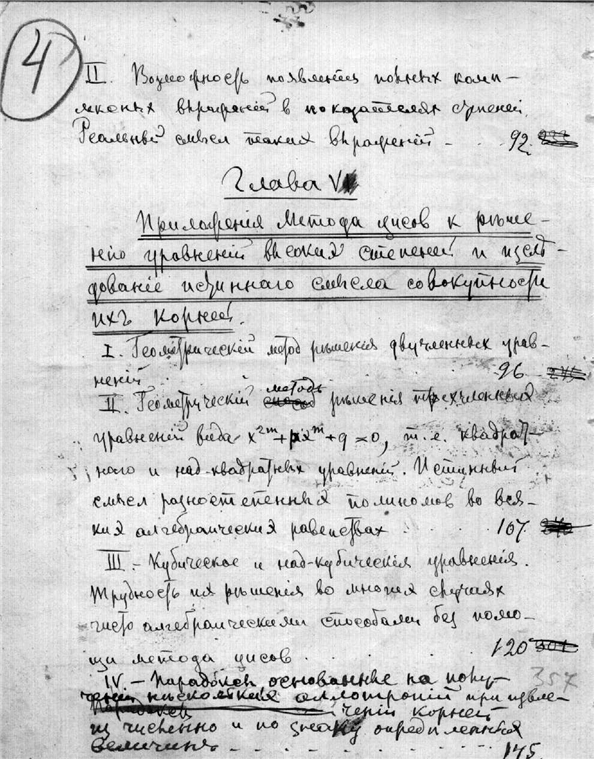 4
II. Возможность появления полных комп-
лексных выражений в показателях степеней.
Реальный смысл таких выражений - . . 92.
Глава V
Приложения метода цисов к рѣше-
нію уравненій высоких степеней и изслѣ-
дованіе истиннаго смысла совокупности
ихъ корней.
I. Геометрическій метод рѣшенія двучленных урав-
неній . . . 96
II. Геометрическій методъ рѣшенія трехчленных
уравненій вида x²ᵐ+pxᵐ+q=0, т.е. квадрат-
наго и над-квадратных уравненій. Истинный
смысл разностепенных полиномов во вся-
ких алгебраических равенствах . . . 107
III - Кубическое и над-кубическія уравненія.
Трудность их рѣшенія во многих случаях
чисто алгебраическими способами без помо-
щи метода цисов . . . 120
IV - основанные на полу- 357
ченіи нѣскольких при извле-
ченіи корней
из численно и по знаку опредѣленных
величин . . . 145